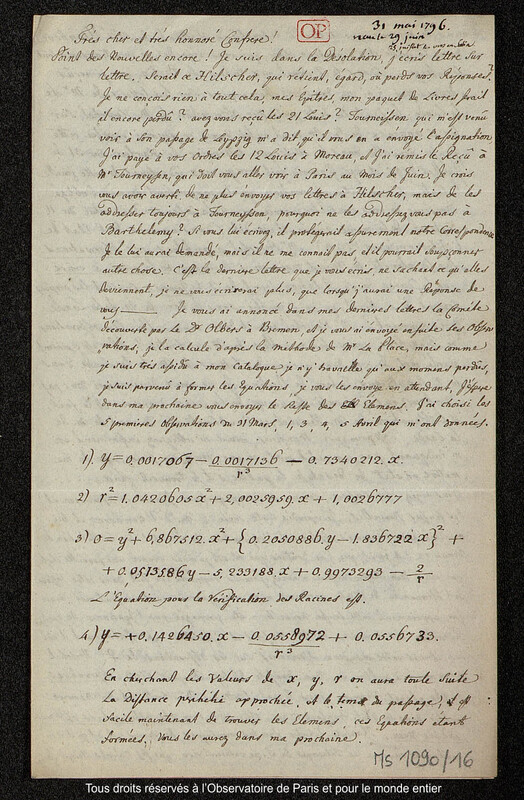 31 mai 1796.
OP
reçue le 29 juin
Très cher et très honnoré Confrere!
Point des Nouvelles encore! Je suis dans la Désolation, j'ecris lettre sur
lettre. Serait ce Hilscher, qui retient, egard, où perds vos Réponses?
Je ne conçois rien à tout cela, mes Epitres, mon paquet de Livres serait
il encore perdu? avez vous reçu les 21 Louis? Tourneysen qui m'est venu
voir à son passage de Leypzig m'a dit qu'il vous en a envoyé l'assignation
J'ai payé à vos Ordres les 12 Louis à Moreau, et j'ai remis le Reçû à
Mr Tourneysen, qui doit vous aller voir à Paris au mois de Juin. Je crois
vous avoir averti de ne plus envoyer vos lettres à Hilscher, mais de les
addresser toujours à Tourneysen, pourquoi ne les addressez vous pas à
Barthelemy? Si vous lui ecrivez, il protegerait assurement notre Correspondence
Je le lui aurai demandé, mais il ne me connait pas et il pourrait soupçonner
autre chose. C'est la derniere lettre que je vous ecris, ne sachant ce qu'elles
deviennent, je ne vous ecrirai plus, que lorsqu'j'aurai une Réponse de
vous — Je vous ai annoncé dans mes dernieres lettres la Comète
découverte par le Dr Olbers à Bremen, et je vous ai envoyé ensuite les Observ
vations, je la calcule d'après la méthode de Mr La Place, mais comme
je suis très assidu à mon Catalogue je n'y travaille qu'aux momens perdûs,
je suis parvenu à former les Equations, je vous les envoye en attendant, J'espere
dans ma prochaine vous envoyer le Reste des Elemens. J'ai choisi les
5 premieres Observations du 31 Mars, 1, 3, 4, 5 Avril qui m'ont données.
1). y = 0.0017067 – 0.0017136/r³ – 0.7340212.x.
2) r² = 1.0420605 x² + 2,0025959.x + 1,0026777
3) 0 = y² + 6,867512.x² + {0.2050886.y – 1.836722 x}² +
+ 0.0513586 y – 5,233188.x + 0,9973293 – 2/r
L'Equation pour la Vérification des Racines est.
4) y = +0.1426450.x – 0.0558972/r³ + 0.0556733.
En cherchant les Valeurs de x, y, r on aura toute suite
La Distance périhelie approchée, et le tems du passage, il est
facile maintenant de trouver les Elemens, ces Equations etant
formées, Vous les aurez dans ma prochaine.
Ms 1090/16
Tous droits réservés à l'Observatoire de Paris et pour le monde entier